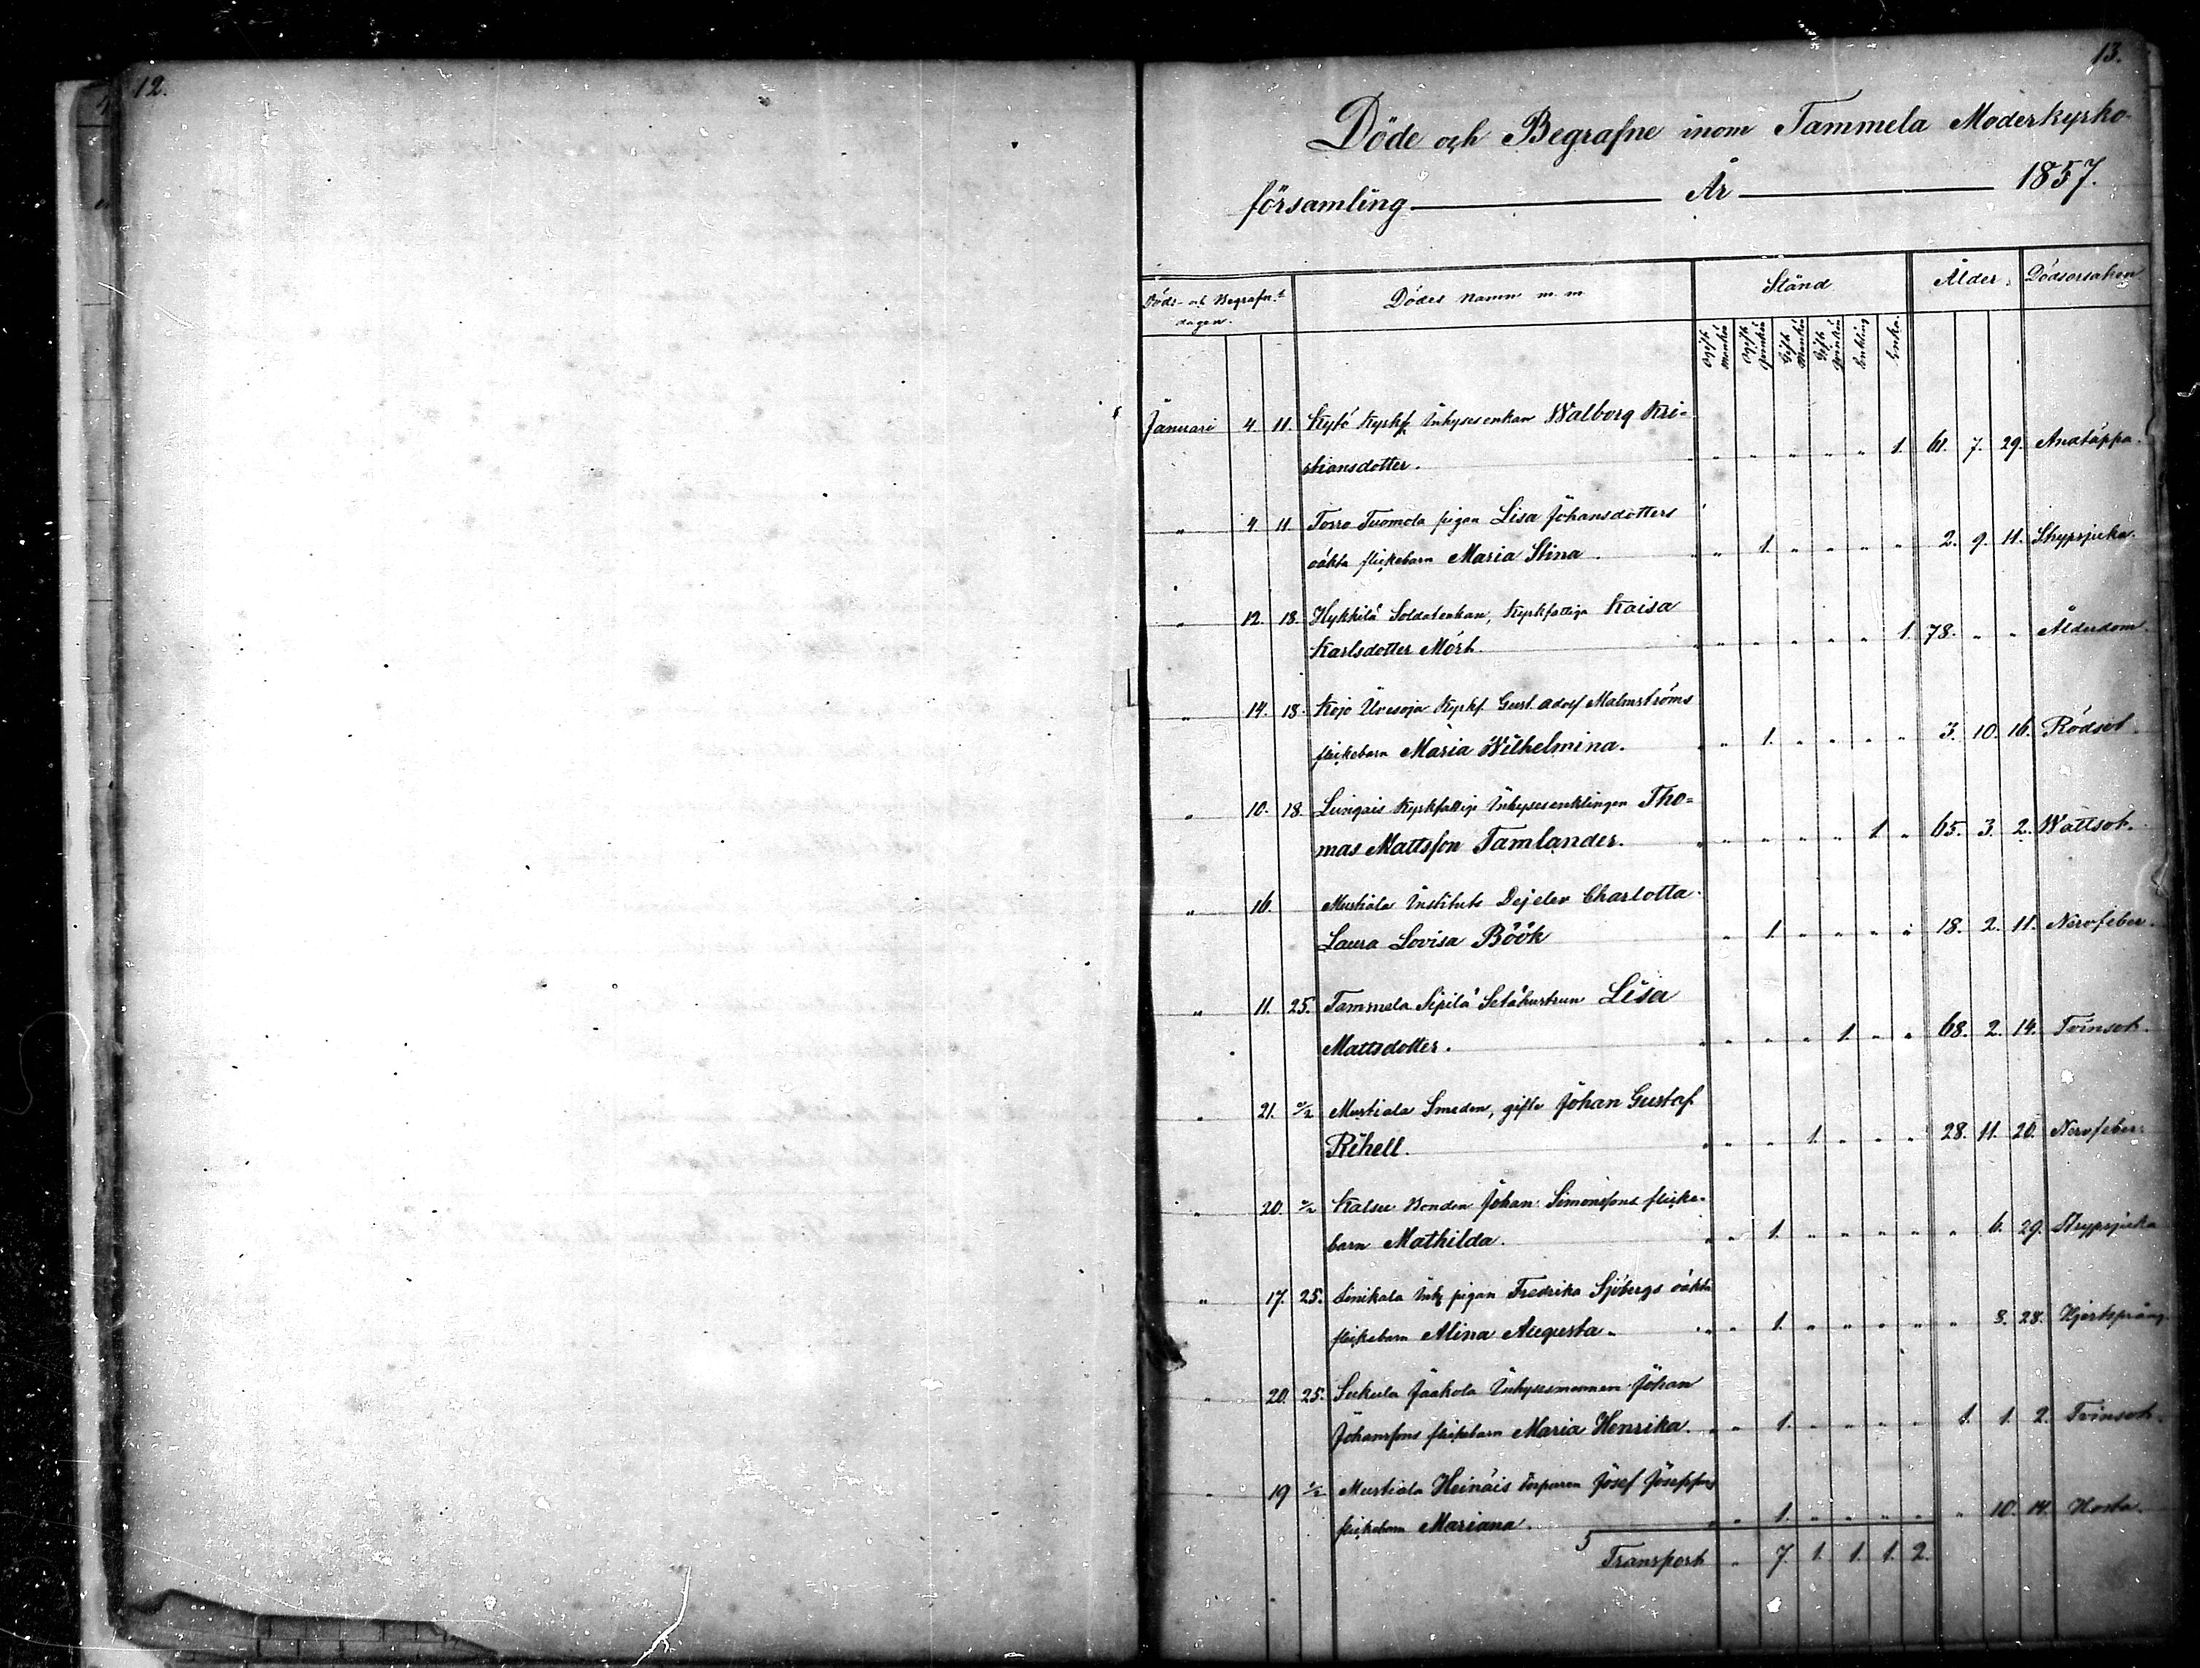 12.
13.
Döde och Begrafne inom Tammela Moderkyrko-
församling År 1857.
Döds- och Begrafn.s dagen. Dödes namn m. m Stånd Ålder. Dödsorsaken
Ogift Mankön Ogift Qvinkön Gift Mankön Gift Qvinkön Enkling Enka.
Januari 4. 11. Kytö Kyrkf. Inhysesenkan Walborg Kri-
stiansdotter. " " " " " 1. 61. 7. 29. Andtäppa.
" 4. 11. Torro Tuomola pigan Lisa Johansdotters
oäkta flickebarn Maria Stina. " 1. " " " " 2. 9. 11. Strypsjuka.
" 12. 18. Hykkilä Soldatenkan, Kyrkfattiga Kaisa
Karlsdotter Mört " " " " " 1. 78. " " Ålderdom.
" 14. 18. Kojo Kyrkf. Gust. Adolf Malmströms
flickebarn Maria Wilhelmina. " 1. " " " " 3. 10. 16. Rödsot.
" 10. 18. Liungais Kyrkfattige Inhysesenklingen Tho-
mas Mattsson Tamlander. " " " " 1. " 65. 3. 2. Wattsot.
" 16. Mustiala Instituts Dejelev Charlotta
Laura Lovisa Böök " 1. " " " " 18. 2. 11. Nervfeber.
" 11. 25. Tammela Sipilä Setähustrun Lisa
Mattsdotter. " " " 1. " " 68. 2. 14. Tvinsot.
" 21. Mustiala Smeden, gifte Johan Gustaf
Rihell. " " 1. " " " 28. 11. 20. Nervfeber.
" 20. Kalsu Bonden Johan Simonssons flicke-
barn Mathilda. " 1. " " " " " 6. 29. Strypsjuka
" 17. 25. Linikala Inh. pigan Fredrika Sjöbergs oäkta
flickebarn Alina Augusta. " 1. " " " " " 8. 28. Hjertsprång.
" 20. 25. Sukula Jaakola Inhysesmannen Johan
Johanssons flickebarn Maria Henrika. " 1. " " " " 1. 1. 2. Tvinsot.
" 19 Mustiala Heinäis torparen Josef Josefssons
flickebarn Mariana. " 1. " " " " " 10. 14. Hosta.
5
Transport " 7. 1. 1. 1. 2.